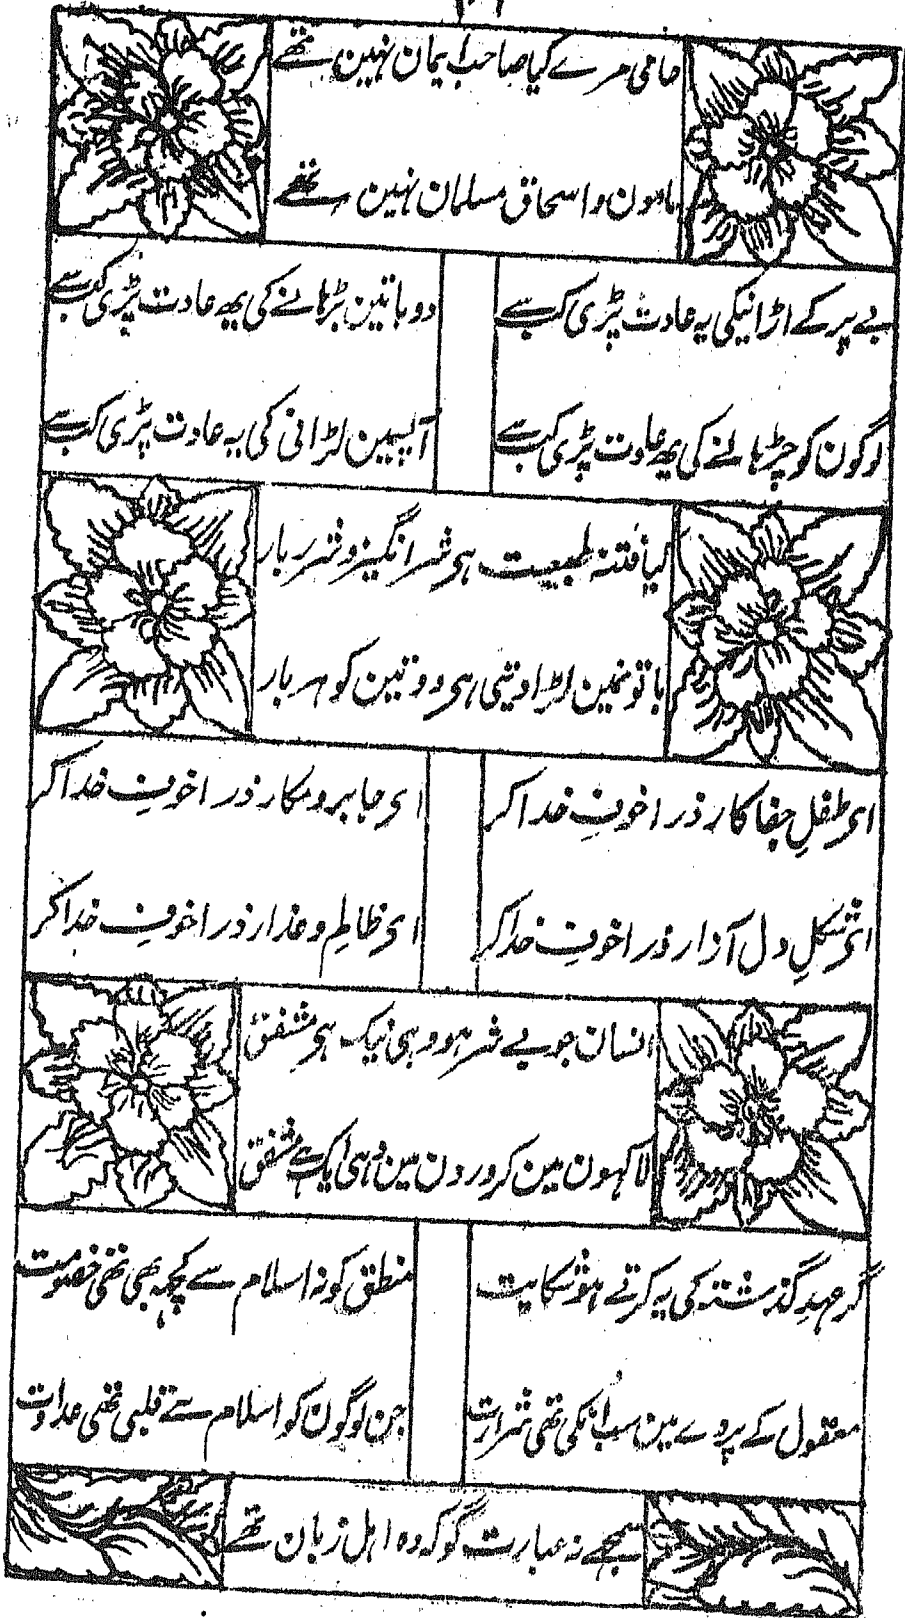 حامی مرے کیا صاحب ایمان نہین تھے
مامون و اسحاق مسلمان نہین تھے
بے پر کے اڑانیکی یہ عادت پڑی کب سے
دو باتین بڑہانے کی یھ عادت پڑی کب سے
لوگون کو چڑہانے کی یھ عادت پڑی کب سے
آپسمین لڑانی کی یہ عادت پڑی کب سے
کیا فتنہ طبیعت ہی شر انگیز و شرر بار
باتونمین لڑا دیتی ہی دو تین کو ہر بار
ای طفلِ جفا کار ذرا خوفِ خدا کر
ای جابر و مکار ذرا خوفِ خدا کر
ای شکلِ دل آزار ذرا خوفِ خدا کر
ای ظالم و غدار ذرا خوفِ خدا کر
انسان جو بے شر ہو وہی نیک ہی مشفق
لاکہون مین کرورون مین وہی ایک ہے مشفق
گر عہدِ گذشتہ کی یہ کرتے ہو شکایت
منطق کو نہ اسلام سے کچھ بھی تھی خصومت
معقول کے پردے مین سب اُنکی تھی شرارت
جن لوگون کو اسلام سے قلبی تھی عداوت
سمجھے نہ عبارت گو کہ وہ اہل زبان تھے